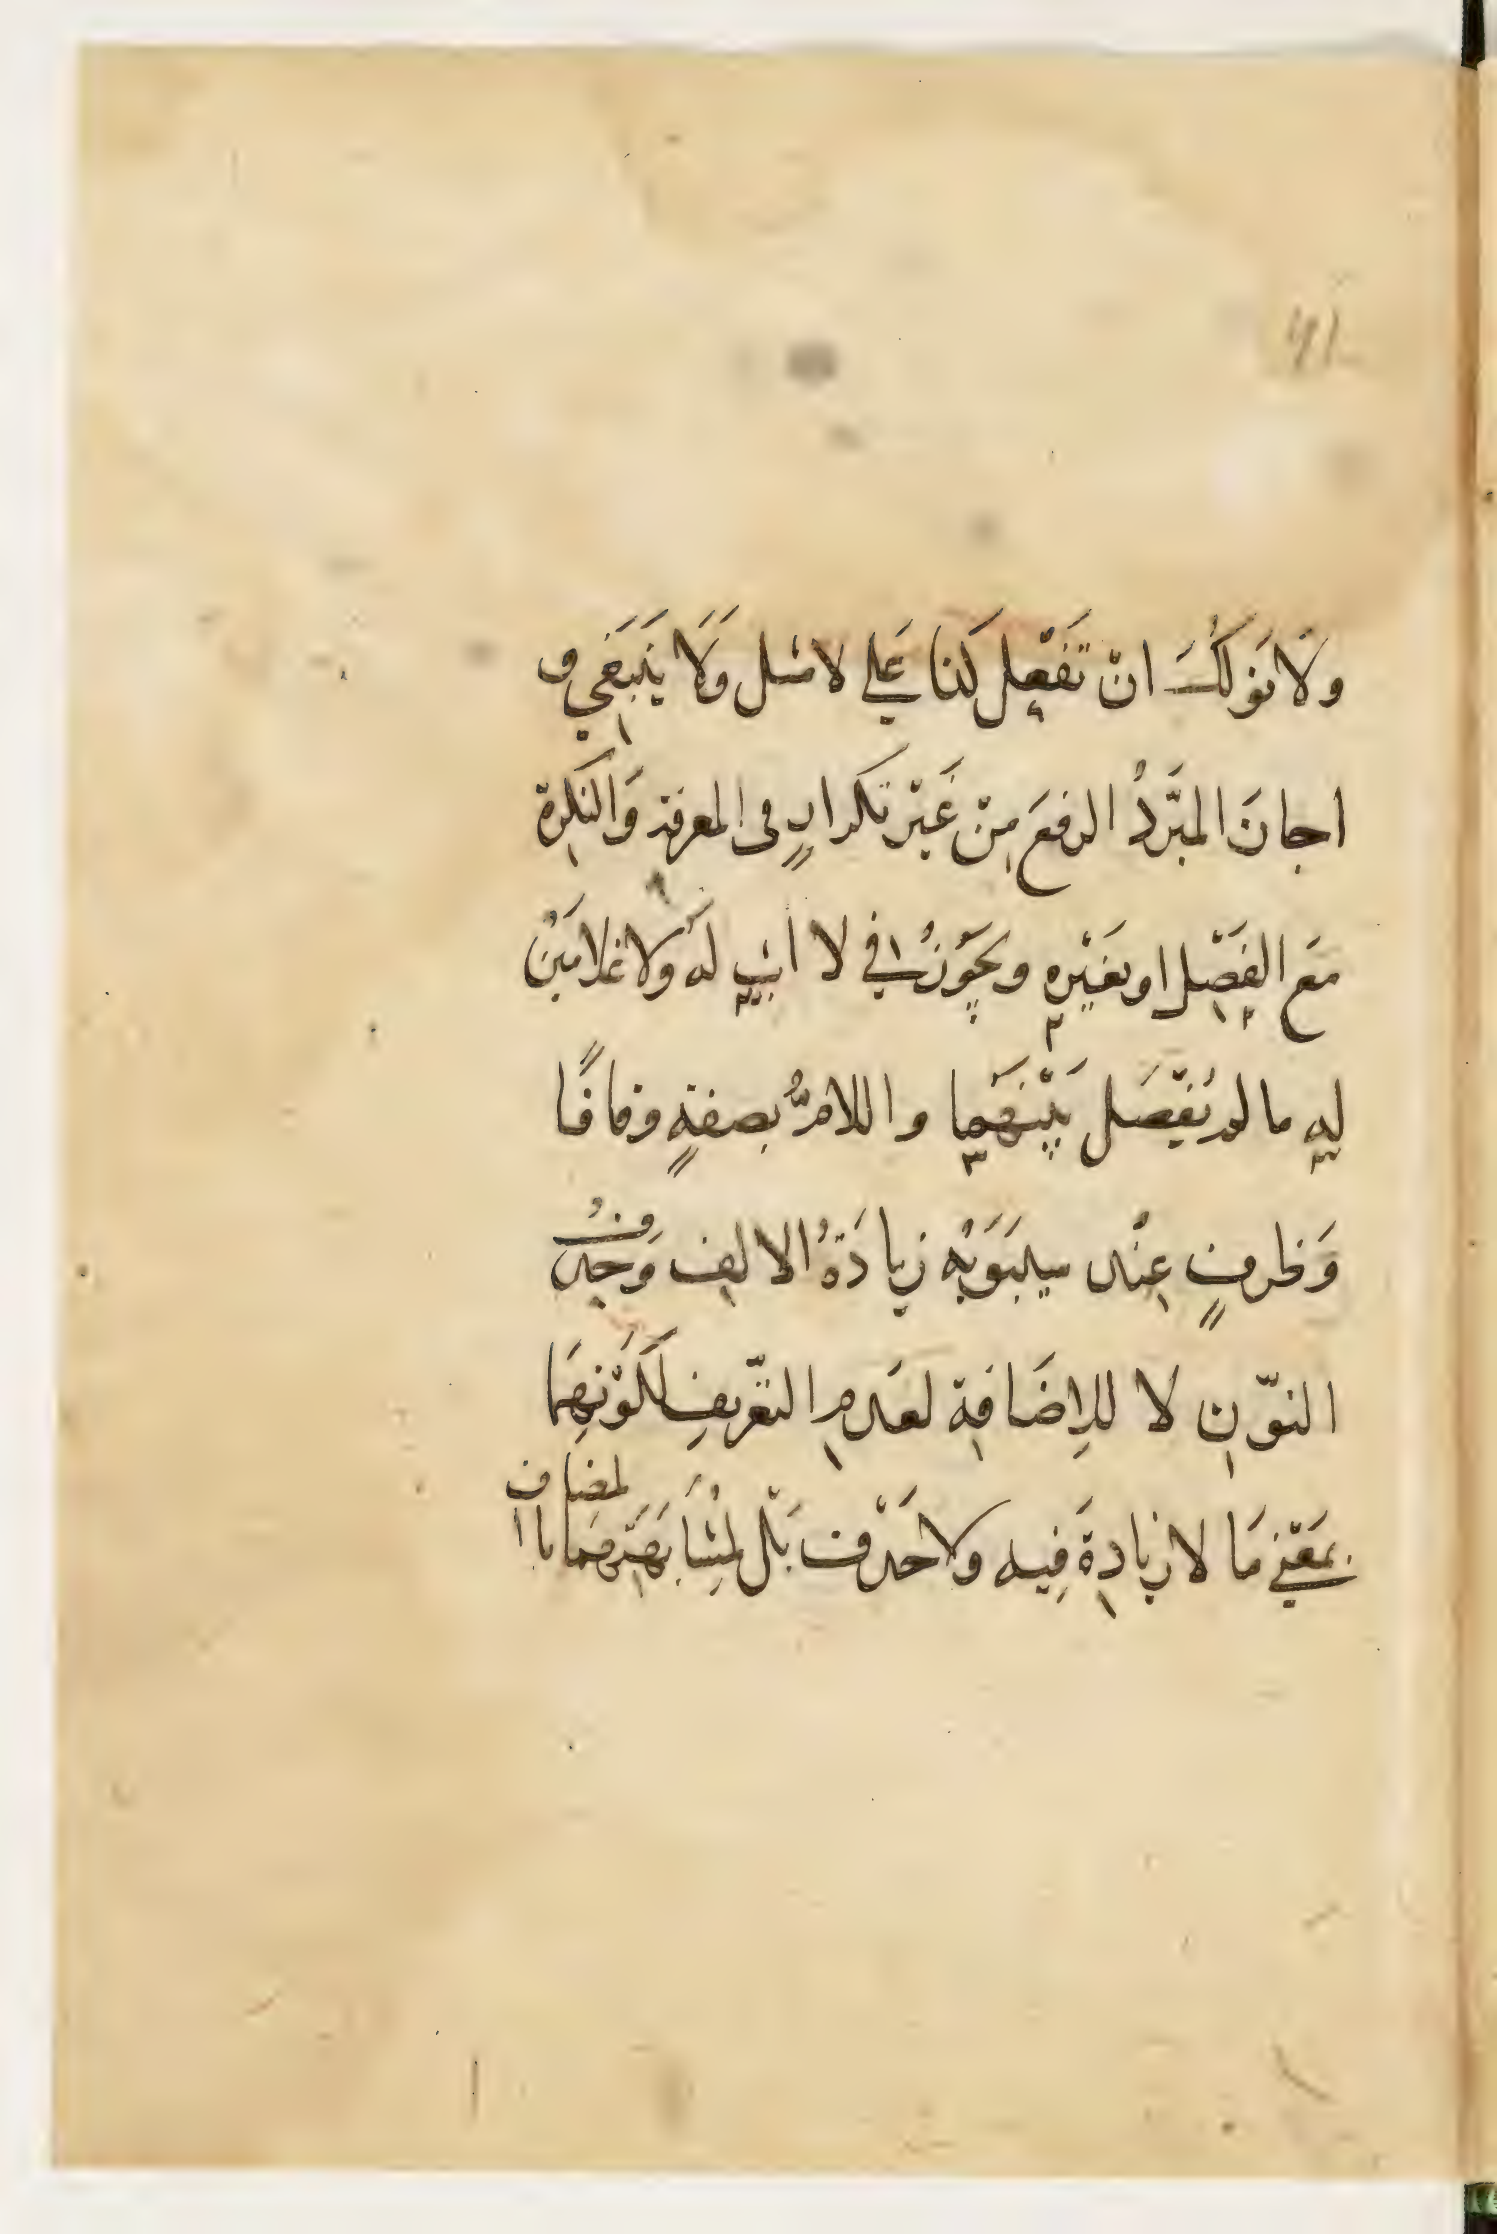 41
ولَا نولكَ انْ تَفْعَل كَذا عَلي لا مثل وَلَا يَنبَغي و
اجازَ المبَّردُ الرفعَ مِنْ غَيْر تكرارٍ فى المعرفة وَالنَكِرة
مَع الفَصْل او بغَيْرِهِ ويَجُوْزُ في لا ابَ لَهُ ولا غلامَيْن
لهِ ما لم يُفْصَل بَيْنَهَما واللامُّ بصفةٍ وفاقًا
وَظرفٍ عِنْد سيبَوَيْه زيادَةُ الالِف وَحَذفُ
النوّنِ لا للاِضَافِة لعَدمِ التَّعْريفِ لكَوْنِهِمَا
بمَعْني مَا لا زيادِةَ فِيه ولا حَذْف بَلْ لمشَابَهَتِهمَا با لمضاف